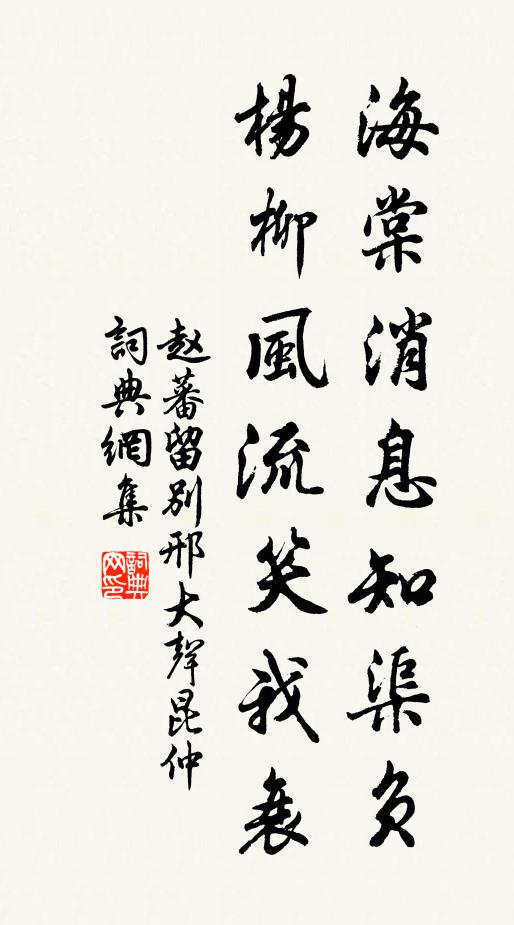 海棠消息知渠負
楊柳風流笑我衰
赵蕃留別邢大聲昆仲
詞典網集
詞典网印